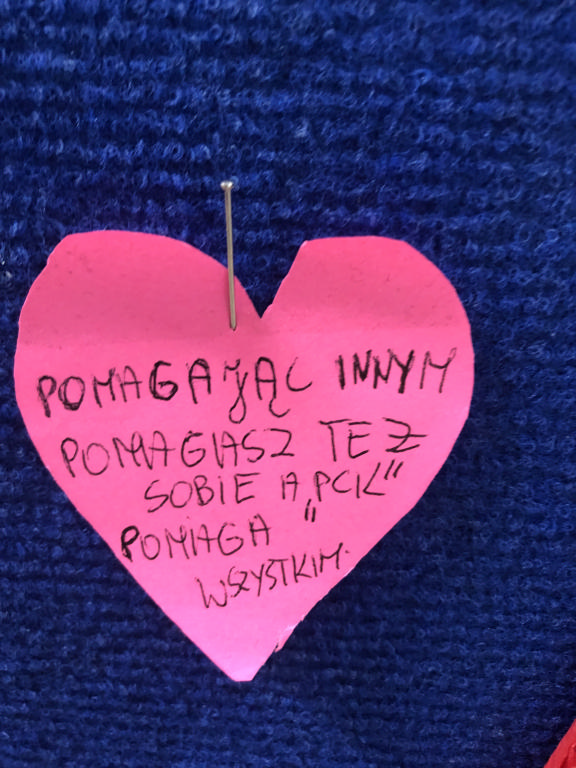 POMAGAJĄC INNYM
POMAGASZ TEŻ
SOBIE A „PCK"
POMAGA
WSZYSTKIM.